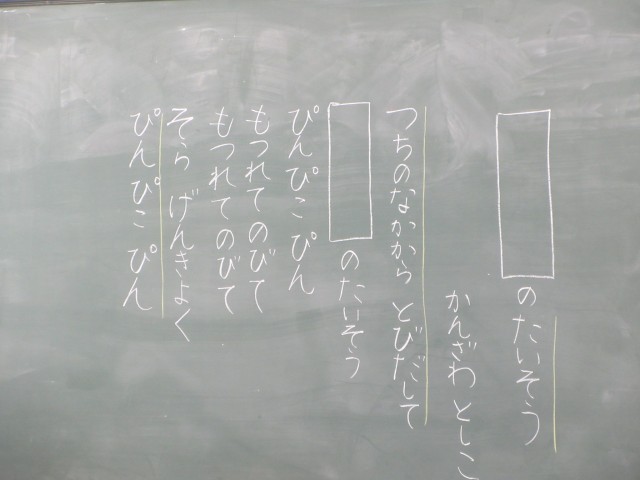 のたいそう
かんざわ としこ
つちのなかから とびだして
のたいそう
ぴんぴこ ぴん
もつれてのびて
もつれてのびて
そら げんきよく
ぴんぴこ ぴん